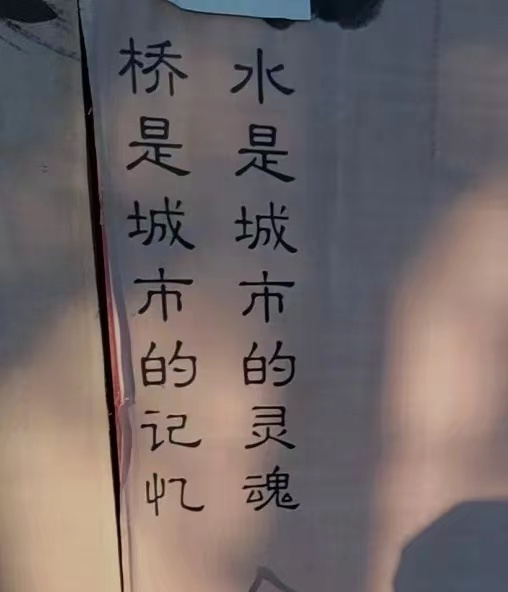 水是城市的灵魂
桥是城市的记忆